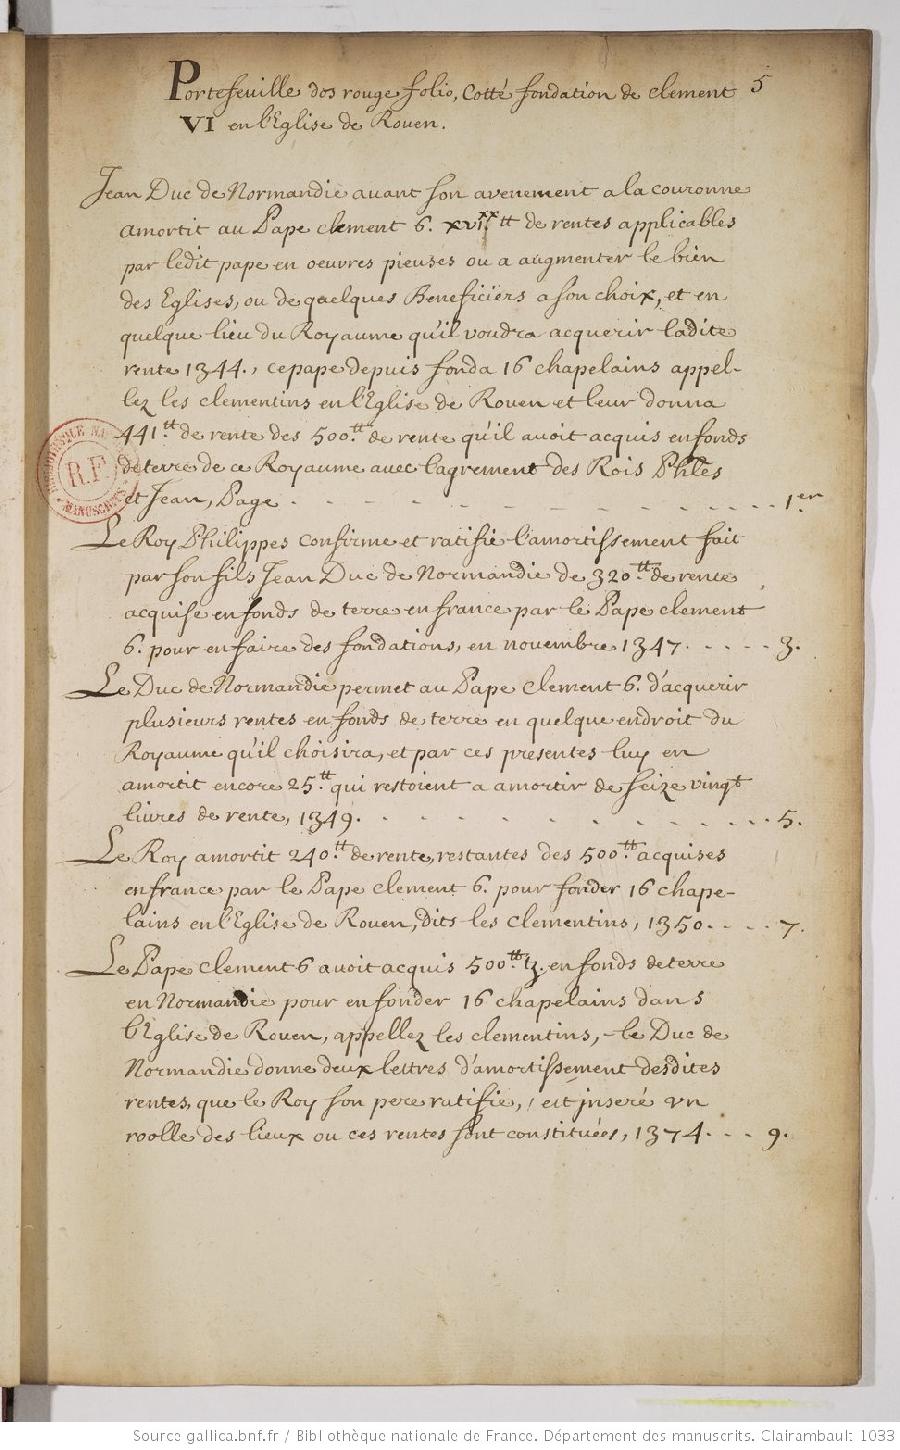 Portefeuille dos rouge folio, Cotté fondation de clement 5
VI en l'Eglise de Rouen.
Jean Duc de Normandie avant son avenement a la couronne
amortit au Pape clement 6. xvi.xx tt de rentes applicables
par ledit pape en oeuvres pieuses ou a augmenter le bien
des Eglises, ou de quelques Beneficiers a son choix, et en
quelque lieu du Royaume qu'il voudra acquerir ladite
rente 1344., ce pape depuis fonda 16 chapelains appel-
lez les clementins en l'Eglise de Rouen et leur donna
441.tt de rente des 500.tt de rente qu'il avoit acquis en fonds
de terre de ce Royaume avec l'agrement des Rois Phles
et Jean, Page . - - - - - - - - - . . . . 1.er
Le Roy Philippes confirme et ratifie l'amortissement fait
par son fils Jean Duc de Normandie de 320.tt de rente
acquise en fonds de terre en france par le Pape clement
6. pour en faire des fondations, en novembre 1347. . . . . . 3.
Le Duc de Normandie permet au Pape clement 6. d'acquerir
plusieurs rentes en fonds de terre en quelque endroit du
Royaume qu'il choisira, et par ces presentes luy en
amortit encore 25.tt qui restoient a amortir de seize vingt
livres de rente, 1349. . - - - - - - - - . . . 5.
Le Roy amortit 240.tt de rente, restantes des 500.tt acquises
en france par le Pape clement 6. pour fonder 16 chape-
lains en l'Eglise de Rouen, dits les clementins, 1350. . . . 7.
Le Pape clement 6 avoit acquis 500.tt tz. en fonds de terre
en Normandie pour en fonder 16 chapelains dans
l'Eglise de Rouen, appellez les clementins, le Duc de
Normandie donne deux lettres d'amortissement desdites
rentes, que le Roy son pere ratifie, / est inseré un
roolle des lieux ou ces rentes sont constituées, 1374. . . . 9.
R.F.
MANUSCRITS
Source gallica.bnf.fr / Bibliothèque nationale de France. Département des manuscrits. Clairambault 1033